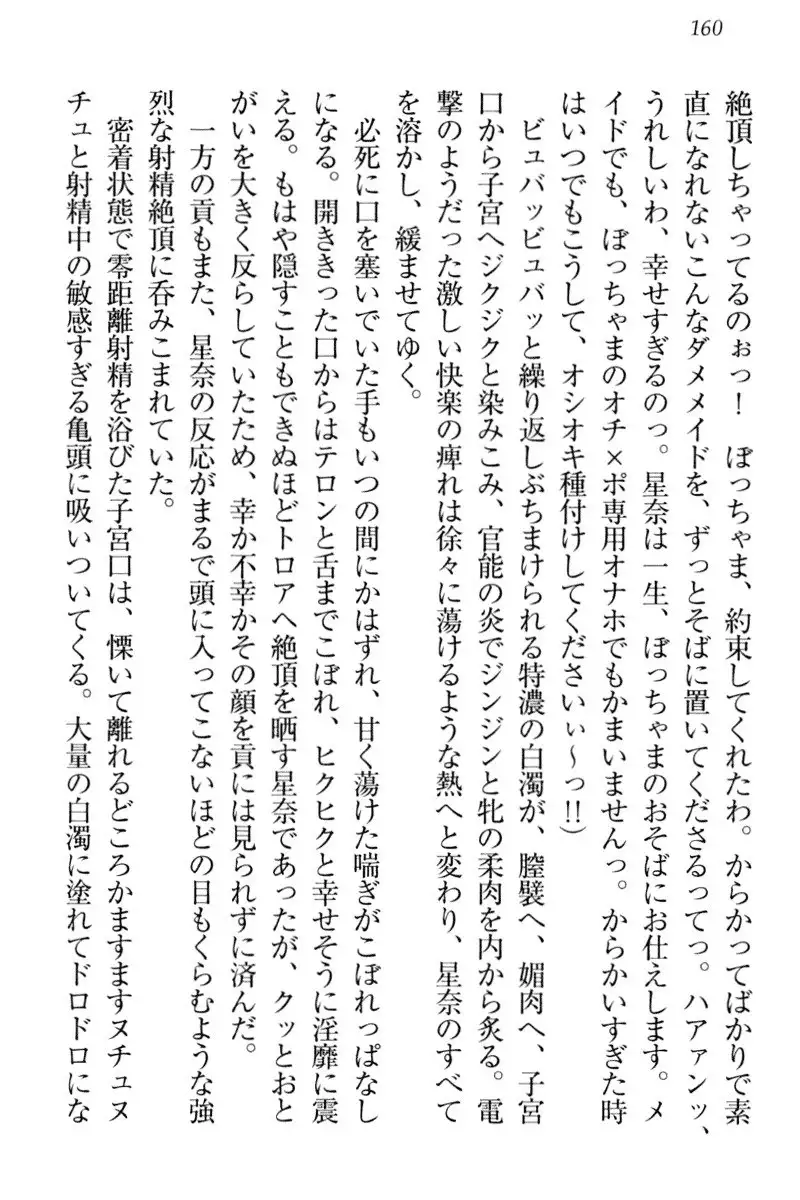 160
絶頂しちゃってるのぉっ！　ぼっちゃま、約束してくれたわ。からかってばかりで素
直になれないこんなダメメイドを、ずっとそばに置いてくださるってっ。ハアァンッ、
うれしいわ、幸せすぎるのっ。星奈は一生、ぼっちゃまのおそばにお仕えします。メ
イドでも、ぼっちゃまのオチ×ポ専用オナホでもかまいませんっ。からかいすぎた時
はいつでもこうして、オシオキ種付けしてくださいぃ〜っ!!）
　ビュバッビュバッと繰り返しぶちまけられる特濃の白濁が、膣襞へ、媚肉へ、子宮
口から子宮へジクジクと染みこみ、官能の炎でジンジンと牝の柔肉を内から炙る。電
撃のようだった激しい快楽の痺れは徐々に蕩けるような熱へと変わり、星奈のすべて
を溶かし、緩ませてゆく。
　必死に口を塞いでいた手もいつの間にかはずれ、甘く蕩けた喘ぎがこぼれっぱなし
になる。開ききった口からはテロンと舌までこぼれ、ヒクヒクと幸せそうに淫靡に震
える。もはや隠すこともできぬほどトロアヘ絶頂を晒す星奈であったが、クッとおと
がいを大きく反らしていたため、幸か不幸かその顔を貢には見られずに済んだ。
　一方の貢もまた、星奈の反応がまるで頭に入ってこないほどの目もくらむような強
烈な射精絶頂に呑みこまれていた。
　密着状態で零距離射精を浴びた子宮口は、慄いて離れるどころかますますヌチュヌ
チュと射精中の敏感すぎる亀頭に吸いついてくる。大量の白濁に塗れてドロドロにな